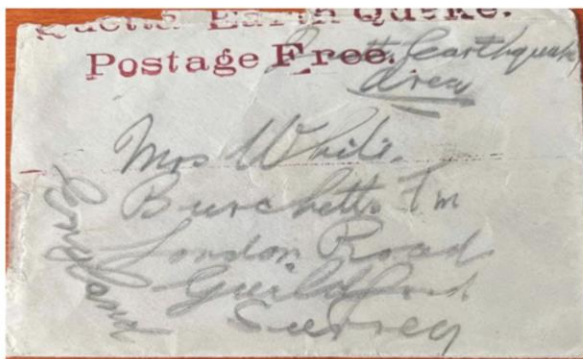 Quetta Earth Quake.
Postage Free.
Quetta Earthquake
Area
Mrs White.
Burchetts Fm
London Road
Guildford
Surrey
England